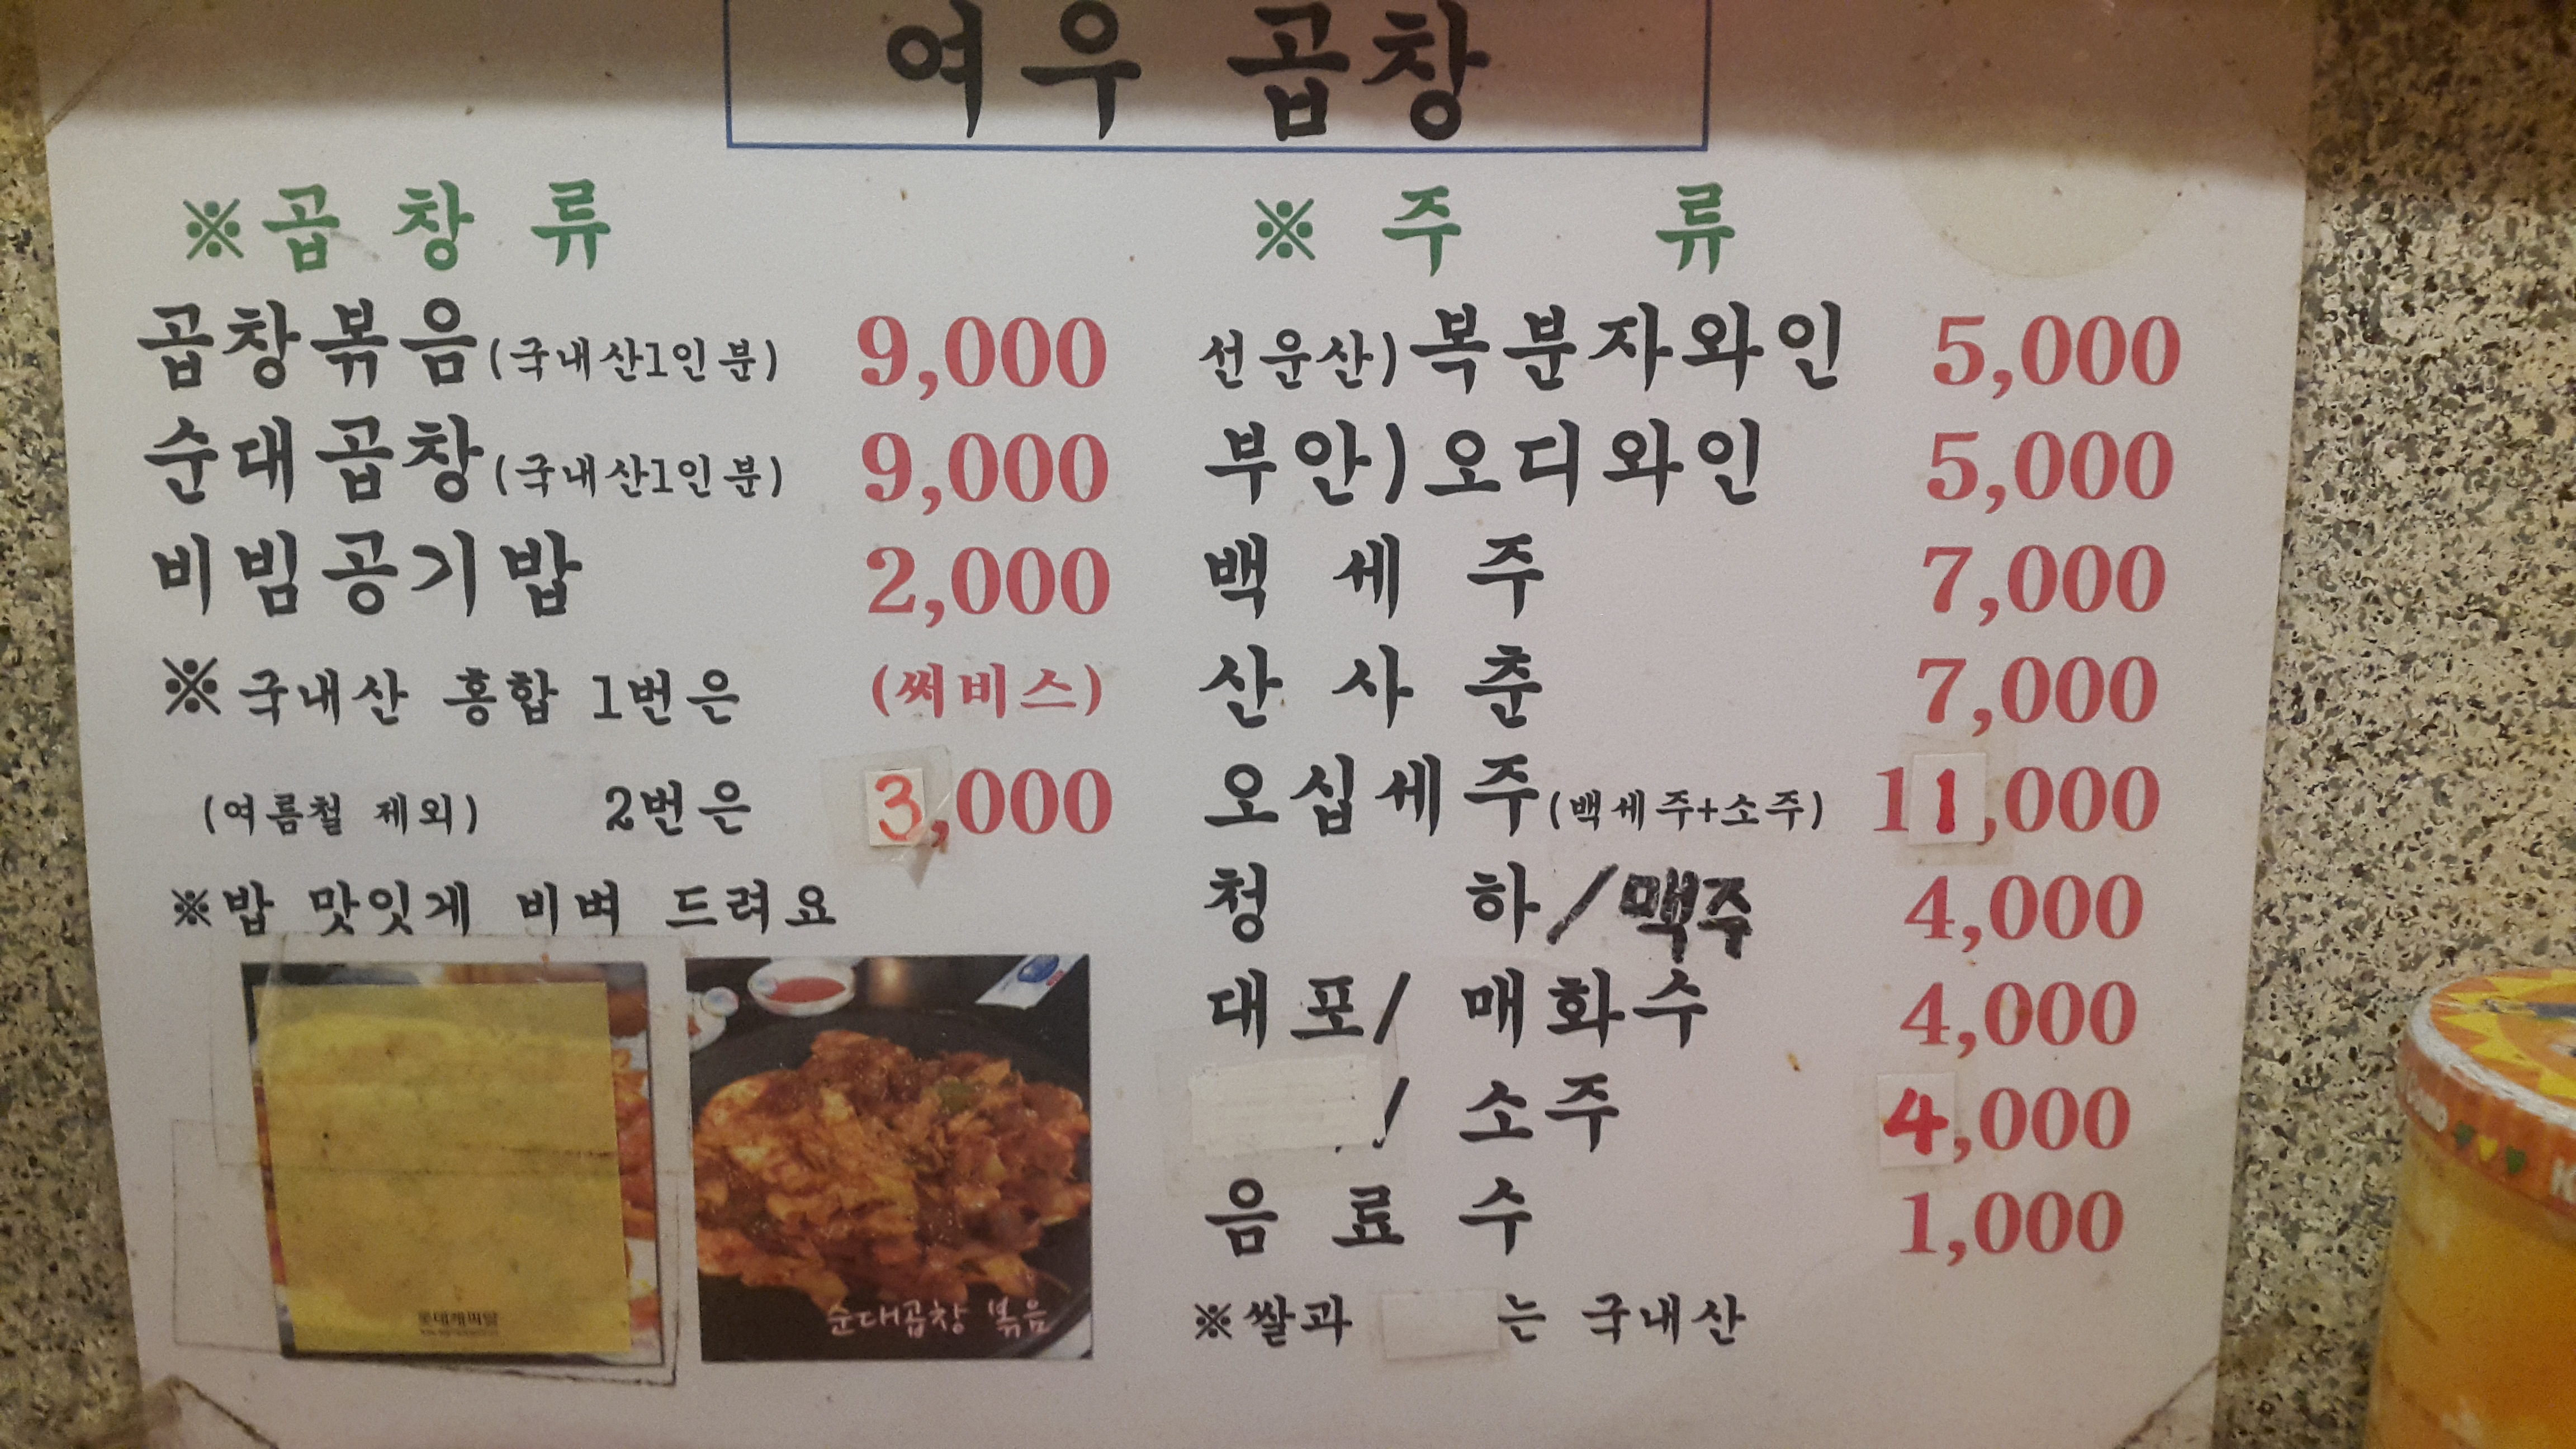 여우 곱창
※곱 창 류
곱창볶음(국내산1인분) 9,000
순대곱창(국내산1인분) 9,000
비빔공기밥 2,000
※국내산 홍합 1번은 (써비스)
(여름철 제외) 2번은 3,000
※밥 맛잇게 비벼 드려요
순대곱창 볶음
※ 주 류
선운산)복분자와인 5,000
부안)오디와인 5,000
백 세 주 7,000
산 사 춘 7,000
오십세주(백세주+소주) 11,000
청 하/맥주 4,000
대포/ 매화수 4,000
/ 소주 4,000
음 료 수 1,000
※쌀과 는 국내산